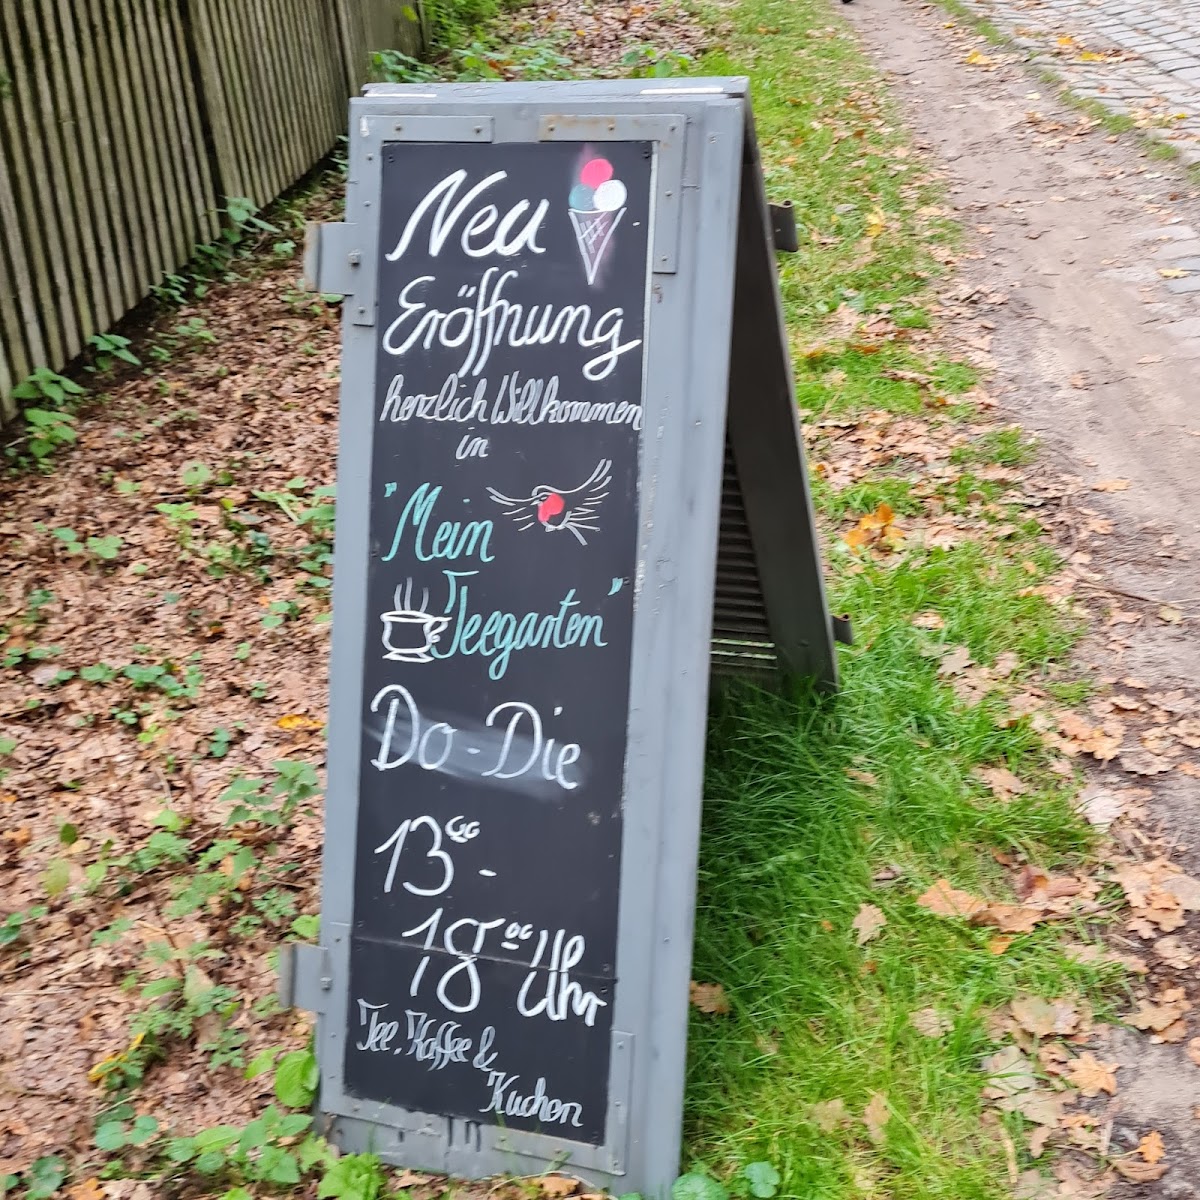 Neu
Eröffnung
herzlich Willkommen
in
"Mein
Teegarten"
Do - Die
13⁰⁰ -
18⁰⁰ Uhr
Tee, Kaffee &
Kuchen